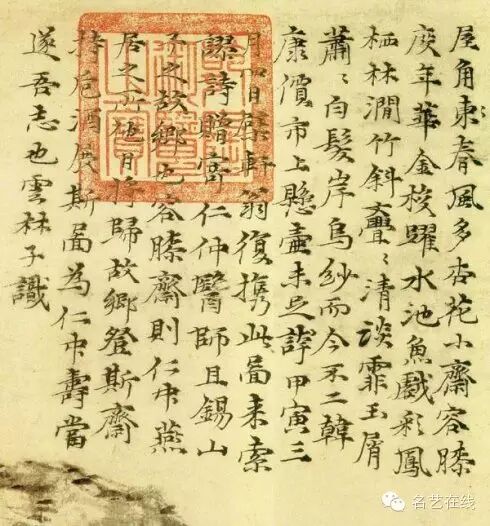 屋角東春風多杏花小齋容膝
度年華金梭躍水池魚戲彩鳳
栖林澗竹斜亹〻清談霏玉屑
蕭〻白髮岸烏紗而今不二韓
康價市上懸壺未足誇甲寅三
月四日檗軒翁復携此圖来索
謬詩贈寄仁仲醫師且錫山
予之故鄉也容膝齋則仁中燕
居之所他日将歸故鄉登斯齋
持卮酒展斯圖為仁中壽當
遂吾志也雲林子識
名艺在线